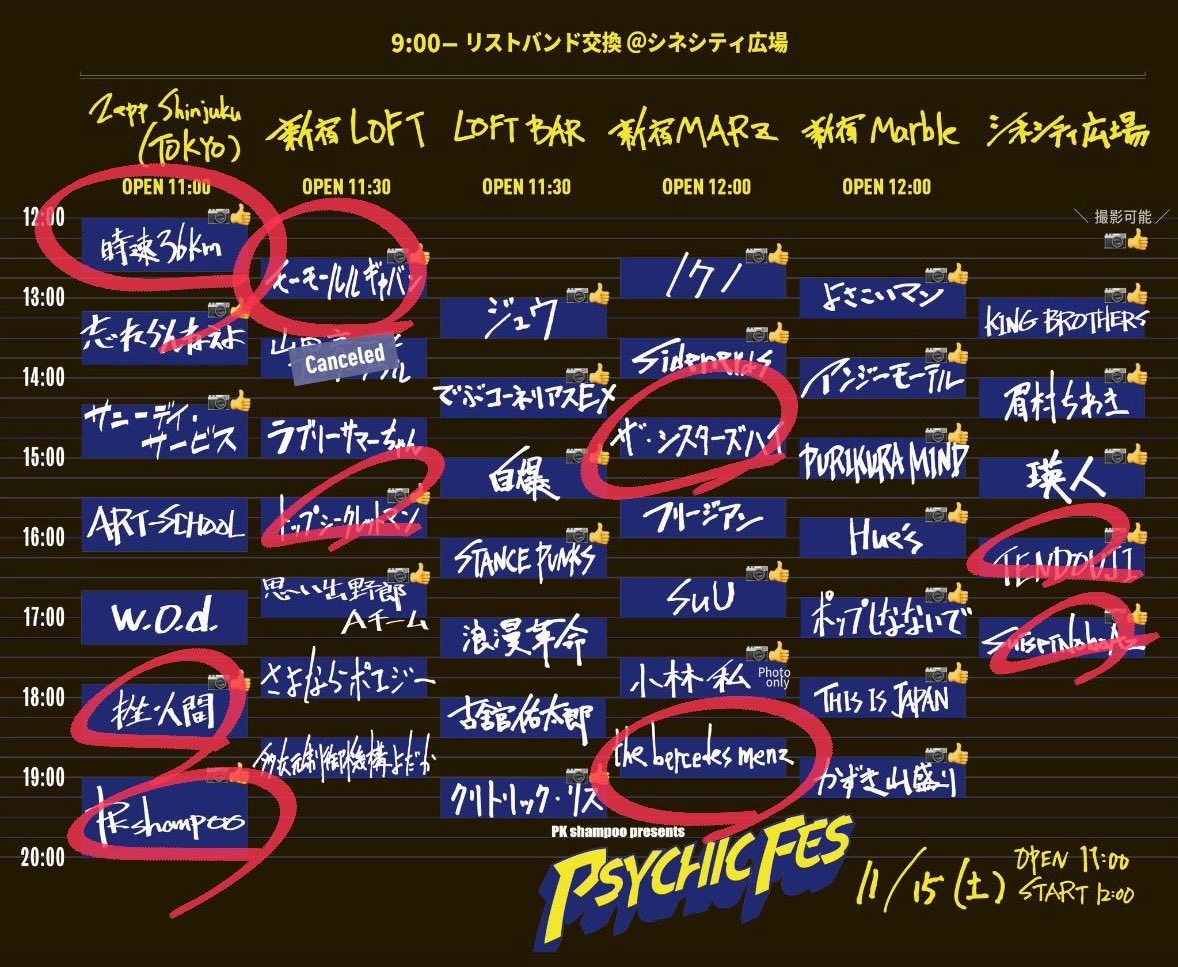 9:00– リストバンド交換 @シネシティ広場
Zepp Shinjuku
(TOKYO)
OPEN 11:00
新宿 LOFT
OPEN 11:30
LOFT BAR
OPEN 11:30
新宿 MARZ
OPEN 12:00
新宿 Marble
OPEN 12:00
シネシティ広場
＼ 撮影可能 ／
12:00
13:00
14:00
15:00
16:00
17:00
18:00
19:00
20:00
時速36km
忘れらんねえよ
サニーデイ・
サービス
ART-SCHOOL
w.o.d.
挫・人間
PK shampoo
モーモールルギャバン
Canceled
ラブリーサマーちゃん
トップシークレットマン
思い出野郎
Aチーム
さよならポエジー
多次元制御機構よだか
ジュウ
でぶコーネリアスEX
自爆
STANCE PUNKS
浪漫革命
古舘佑太郎
クリトリック・リス
Sidenerds
ザ・シスターズハイ
フリージアン
SuU
小林私
Photo
only
the bercedes menz
よさこいマン
アンジーモーテル
PURIKURA MIND
Hue's
ポップしなないで
THIS IS JAPAN
かずき山盛り
KING BROTHERS
眉村ちあき
瑛人
TENDOUJI
PK shampoo presents
PSYCHIC FES
11/15(土)
OPEN 11:00
START 12:00